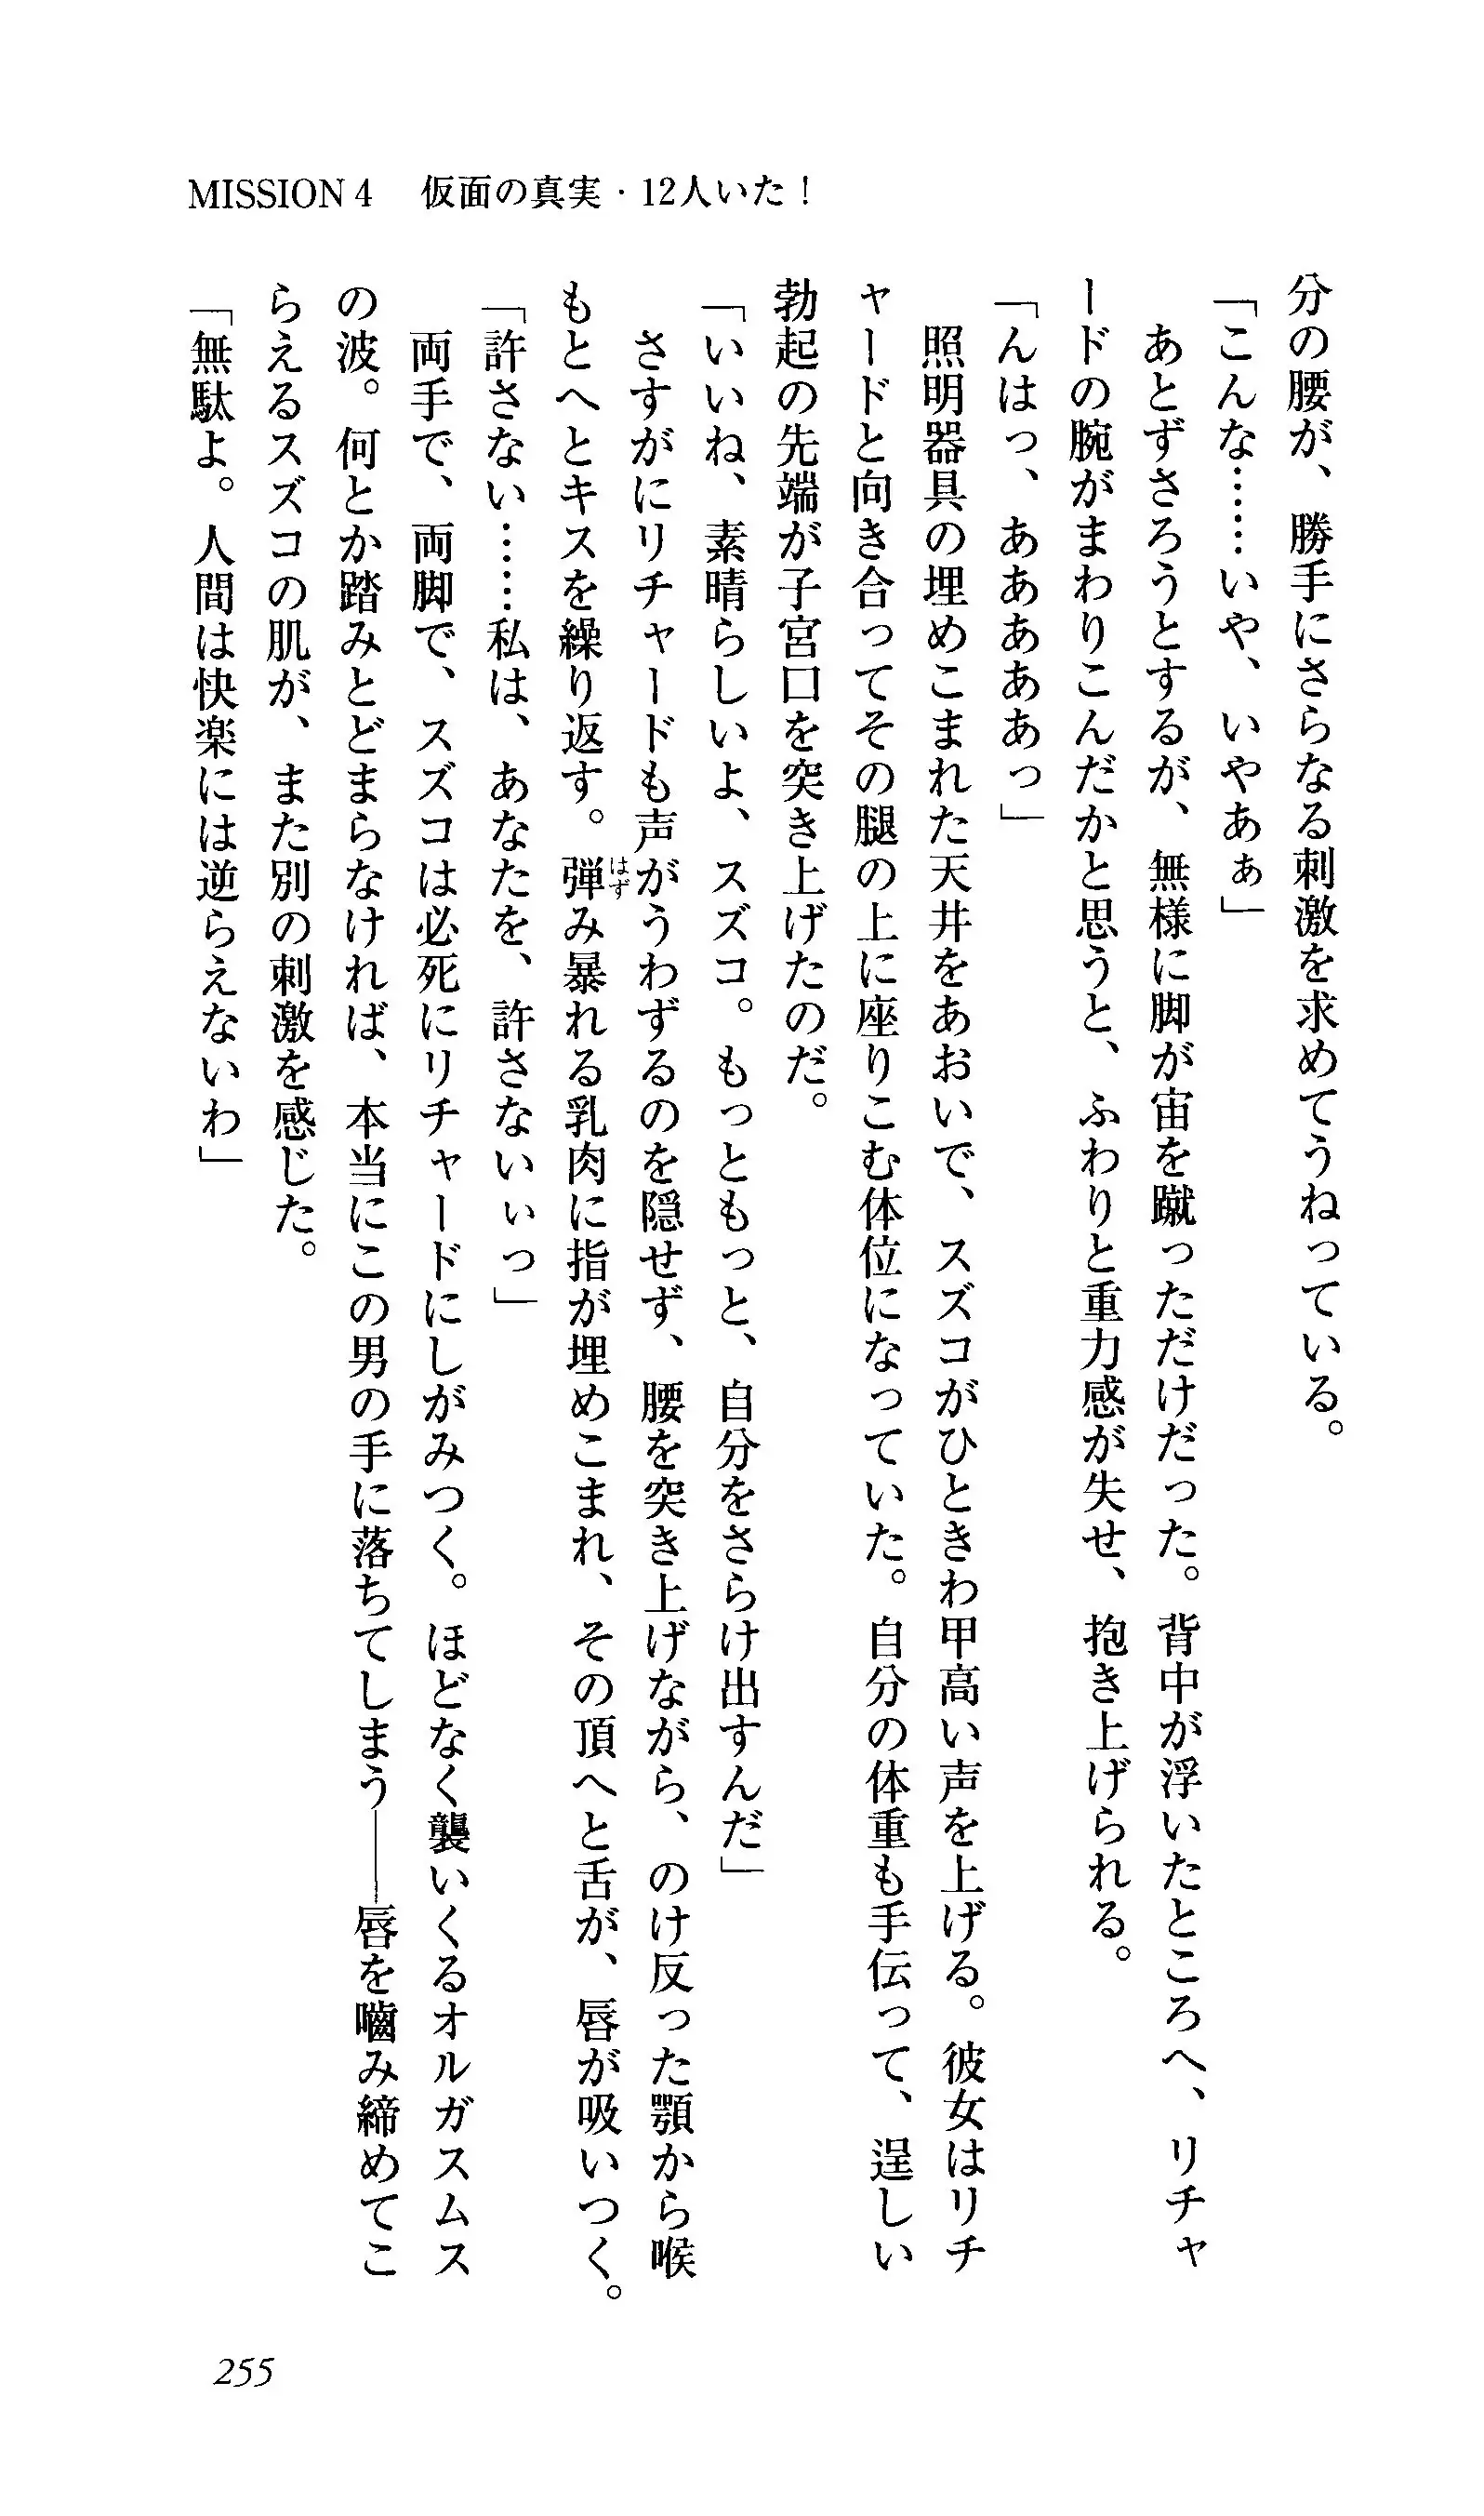 MISSION 4　仮面の真実・12人いた！
分の腰が、勝手にさらなる刺激を求めてうねっている。
「こんな……いや、いやあぁ」
あとずさろうとするが、無様に脚が宙を蹴っただけだった。背中が浮いたところへ、リチャ
ードの腕がまわりこんだかと思うと、ふわりと重力感が失せ、抱き上げられる。
「んはっ、あああああっ」
照明器具の埋めこまれた天井をあおいで、スズコがひときわ甲高い声を上げる。彼女はリチ
ャードと向き合ってその腿の上に座りこむ体位になっていた。自分の体重も手伝って、逞しい
勃起の先端が子宮口を突き上げたのだ。
「いいね、素晴らしいよ、スズコ。もっともっと、自分をさらけ出すんだ」
さすがにリチャードも声がうわずるのを隠せず、腰を突き上げながら、のけ反った顎から喉
もとへとキスを繰り返す。弾み暴れる乳肉に指が埋めこまれ、その頂へと舌が、唇が吸いつく。
はず
「許さない……私は、あなたを、許さないぃっ」
両手で、両脚で、スズコは必死にリチャードにしがみつく。ほどなく襲いくるオルガスムス
の波。何とか踏みとどまらなければ、本当にこの男の手に落ちてしまう――唇を嚙み締めてこ
らえるスズコの肌が、また別の刺激を感じた。
「無駄よ。人間は快楽には逆らえないわ」
255